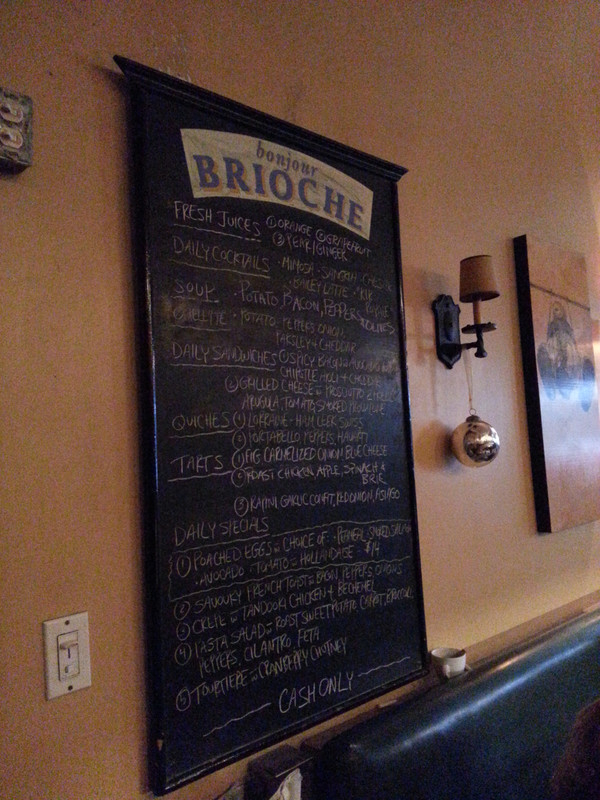 bonjour
BRIOCHE
FRESH JUICES ① ORANGE ② GRAPEFRUIT
③ PEAR/GINGER
DAILY COCKTAILS - MIMOSA - SANGRIA
- BAILEY LATTE - KIR
SOUP - POTATO, BACON, PEPPERS
OMELETTE - POTATO, PEPPERS, ONION
PARSLEY + CHEDDAR
DAILY SANDWICHES ① SPICY BACON AVOCADO
CHIPOTLE AIOLI + CHEDDAR
② GRILLED CHEESE PROSCIUTTO
ARUGULA, TOMATO, SMOKED PROVOLONE
QUICHES ① LORRAINE - HAM LEEK SWISS
② PORTABELLO PEPPERS, HAVARTI
TARTS ① FIG CARMELIZED ONION BLUE CHEESE
② ROAST CHICKEN APPLE, SPINACH &
BRIE
③ GARLIC CONFIT, RED ONION, ASIAGO
DAILY SIECIALS
① POACHED EGGS CHOICE OF - PEAMEAL - SMOKED SALMON
- AVOCADO - TOMATO HOLLANDAISE - $14
② SAVOURY FRENCH TOAST BACON, PEPPERS, ONIONS
③ CREPE TANDOORI CHICKEN + BECHEMEL
④ PASTA SALAD ROAST SWEET POTATO, CARROT, BROCCOLI,
PEPPERS, CILANTRO, FETA
⑤ TOURTIERE CRANBERRY CHUTNEY
CASH ONLY